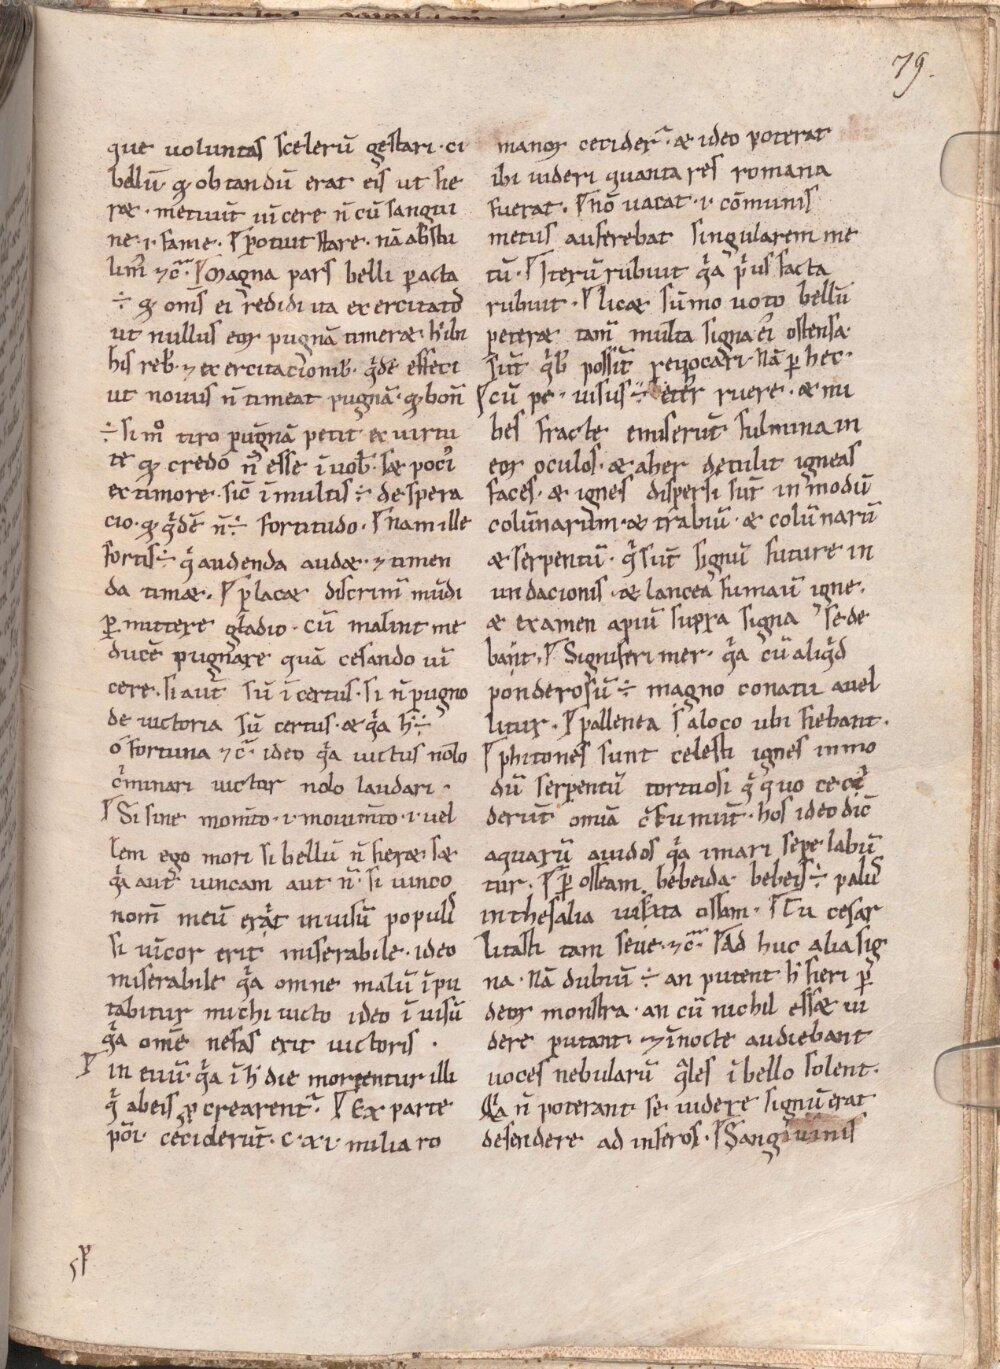 79.
que voluntas scelerū gestari · ci
bellū · qđ obtandū erat eis ut fie
ræ · metuūt vīcere n̄ cū sangui
ne · ı · fame · potuit stare · nā abstu
lim̄ ⁊c̄ · Magna pars belli ꝑacta
÷ qđ om̄s ei reddidi ita exercitatos
ut nullus eoꝝ pugnā timeræ · h' ibi
his reb' · ⁊ exercitacionib' · effeci
ut novus n̄ timeat pugnā · qđ bon̄
÷ si tiro pugnā petit ex virtu
te qđ credo n̄ esse ī uob' · sæ poci'
ex timore · sic̄ ī multis ÷ despera
cio · qđ n̄ ÷ fortitudo · Nam ille
fortis ÷ q̄ audenda audæ · ⁊ timen
da timæ · placæ discrim̄ mūdi
ꝑmittere gladio · cū malint me
ducē pugnare quā cesando vī
cere · si aut̄ sū īcertus · si n̄ pugno
de victoria sū certus · æ q̄a h' ÷
o fortuna ⁊c̄ ideo q̄a victus nolo
c̄minari victor nolo laudari ·
Si sine · ı · · ı · vel
lem ego mori si bellū n̄ fieræ · sæ
q̄a aut vincam aut n̄ · si vinco
nom̄ meū erit invisū populis
si vīcor erit miserabile · ideo
miserabile q̄a omne malū īpu
tabitur michi victo ideo īvisū
q̄a om̄e nefas erit victoris ·
in evū · q̄a ī h' die morientur illi
q̄ ab eis ꝓcrearent̄ · Ex parte
pōı · ceciderūt · c · x · ı · milia ro
manoꝝ ceciderī · æ ideo poterat
ibi videri quanta res romana
fuerat · nō vacat · ı · cōmunis
metus auferebat singularem me
tū · Iterū rubuit q̄a p'us facta
rubuit · licæ sūmo voto bellū
peteræ tam̄ multa signa ei ostensa
sūt q̄b' possūt revocari · Nā ꝑ hec ·
cū pe · visus ÷ eter ruere · æ nu
bes fracte emiserūt fulmina in
eoꝝ oculos · æ aher detulit igneas
faces · æ ignes dispersi sūt in modū
colūnarum · æ trabiū · æ colūnarū
æ serpentū · q̄ sūt signū future in
undacionis · æ lancea fumaū igne ·
æ examen apiū supra signa sede
bant · Signiferi mer · q̄a cū aliq̄d
ponderosū ÷ magno conatu avel
litur · pallenea s̄ a loco ubi fiebant ·
phitones sunt celesti ignes in mo
dū serpentū tortuosi q̄ quo ceci
derūt omīa · hos ideo dic̄
aquarū avidos q̄a ī mari sepe labū
tur · ꝑ osseam bebeida · bebeis ÷ palus
in thesalia iuxta ossam · Tu cesar
litasti tam seve · ⁊c̄ · Ad huc alia sig
na · Nā dubiū ÷ an putent h' fieri ꝑ
deoꝝ monstra · an cū nichil essæ vi
dere putant · ⁊ ī nocte audiebant
voces nebularū q̄les ī bello solent ·
Q̄a n̄ poterant se videre signū erat
defendere ad inferos · Sanguinis